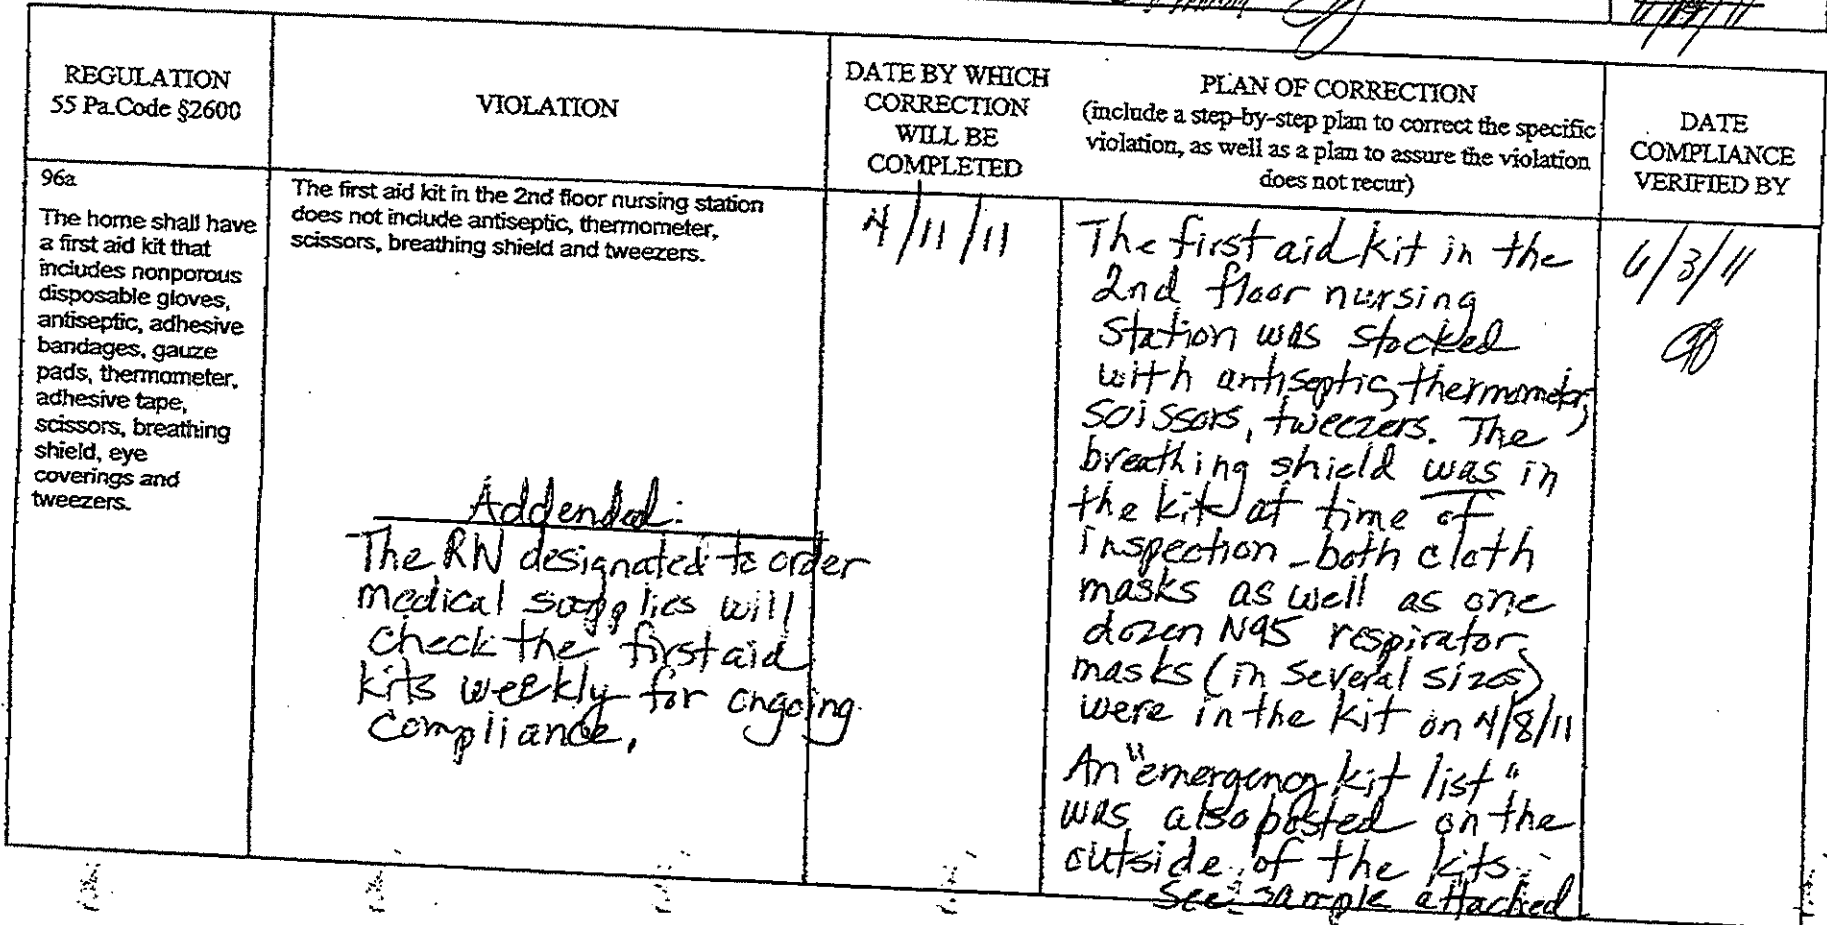 REGULATION
55 Pa.Code §2600
VIOLATION
DATE BY WHICH
CORRECTION
WILL BE
COMPLETED
PLAN OF CORRECTION
(include a step-by-step plan to correct the specific
violation, as well as a plan to assure the violation
does not recur)
DATE
COMPLIANCE
VERIFIED BY
96a
The home shall have
a first aid kit that
includes nonporous
disposable gloves,
antiseptic, adhesive
bandages, gauze
pads, thermometer,
adhesive tape,
scissors, breathing
shield, eye
coverings and
tweezers.
The first aid kit in the 2nd floor nursing station
does not include antiseptic, thermometer,
scissors, breathing shield and tweezers.
Addended:
The RN designated to order
medical supplies will
check the first aid
kits weekly for ongoing
compliance.
4/11/11
The first aid kit in the
2nd floor nursing
station was stocked
with antiseptic, thermometer,
scissors, tweezers. The
breathing shield was in
the kit at time of
inspection - both cloth
masks as well as one
dozen N95 respirator
masks (in several sizes)
were in the kit on 4/8/11
An "emergency kit list"
was also posted on the
outside of the kits.
See sample attached
6/3/11